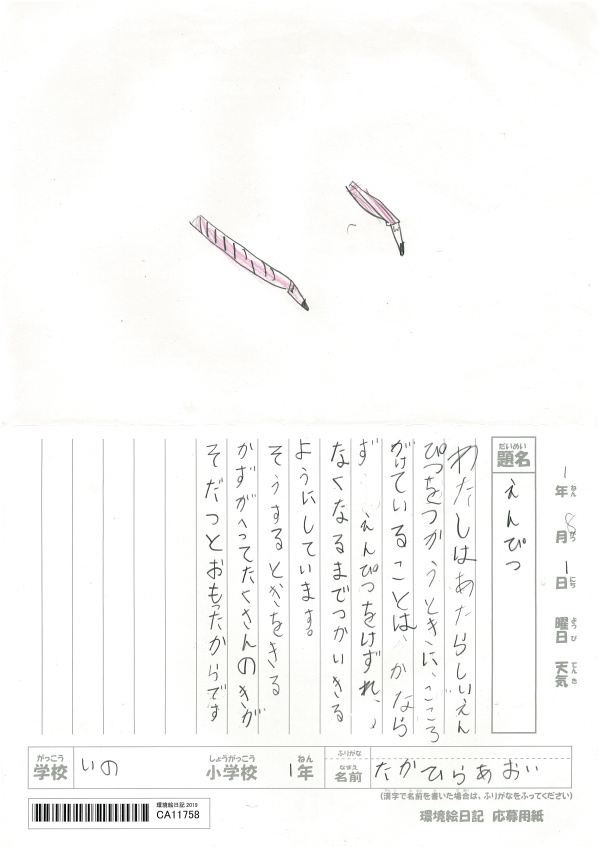 1年ねん 8月がつ 1日にち 曜日ようび 天気てんき
題名だいめい えんぴつ
わたしはあたらしいえん
ぴつをつかうときに、こころ
がけていることは、かなら
ず えんぴつをけずれ、
なくなるまでつかいきる
ようにしています。
そうするときをきる
かずがへってたくさんのきが
そだつとおもったからです
がっこう
学校 いの しょうがっこう 小学校 1年ねん
ふりがな
なまえ
名前 たかひらあおい
(漢字で名前を書いた場合は、ふりがなをふってください)
環境絵日記 2019
CA11758
環境絵日記 応募用紙